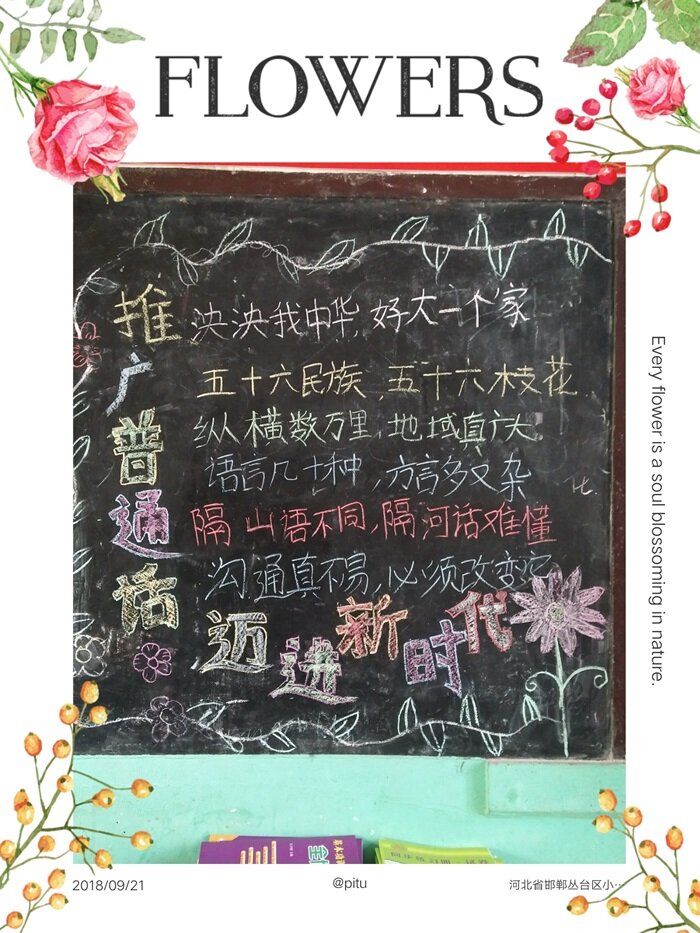 FLOWERS
推广普通话
泱泱我中华,好大一个家
五十六民族,五十六枝花
纵横数万里,地域真广大
语言几十种,方言多又杂
隔山语不同,隔河话难懂
沟通真不易,必须改变它
迈进新时代
Every flower is a soul blossoming in nature.
2018/09/21
@pitu
河北省邯郸丛台区小…